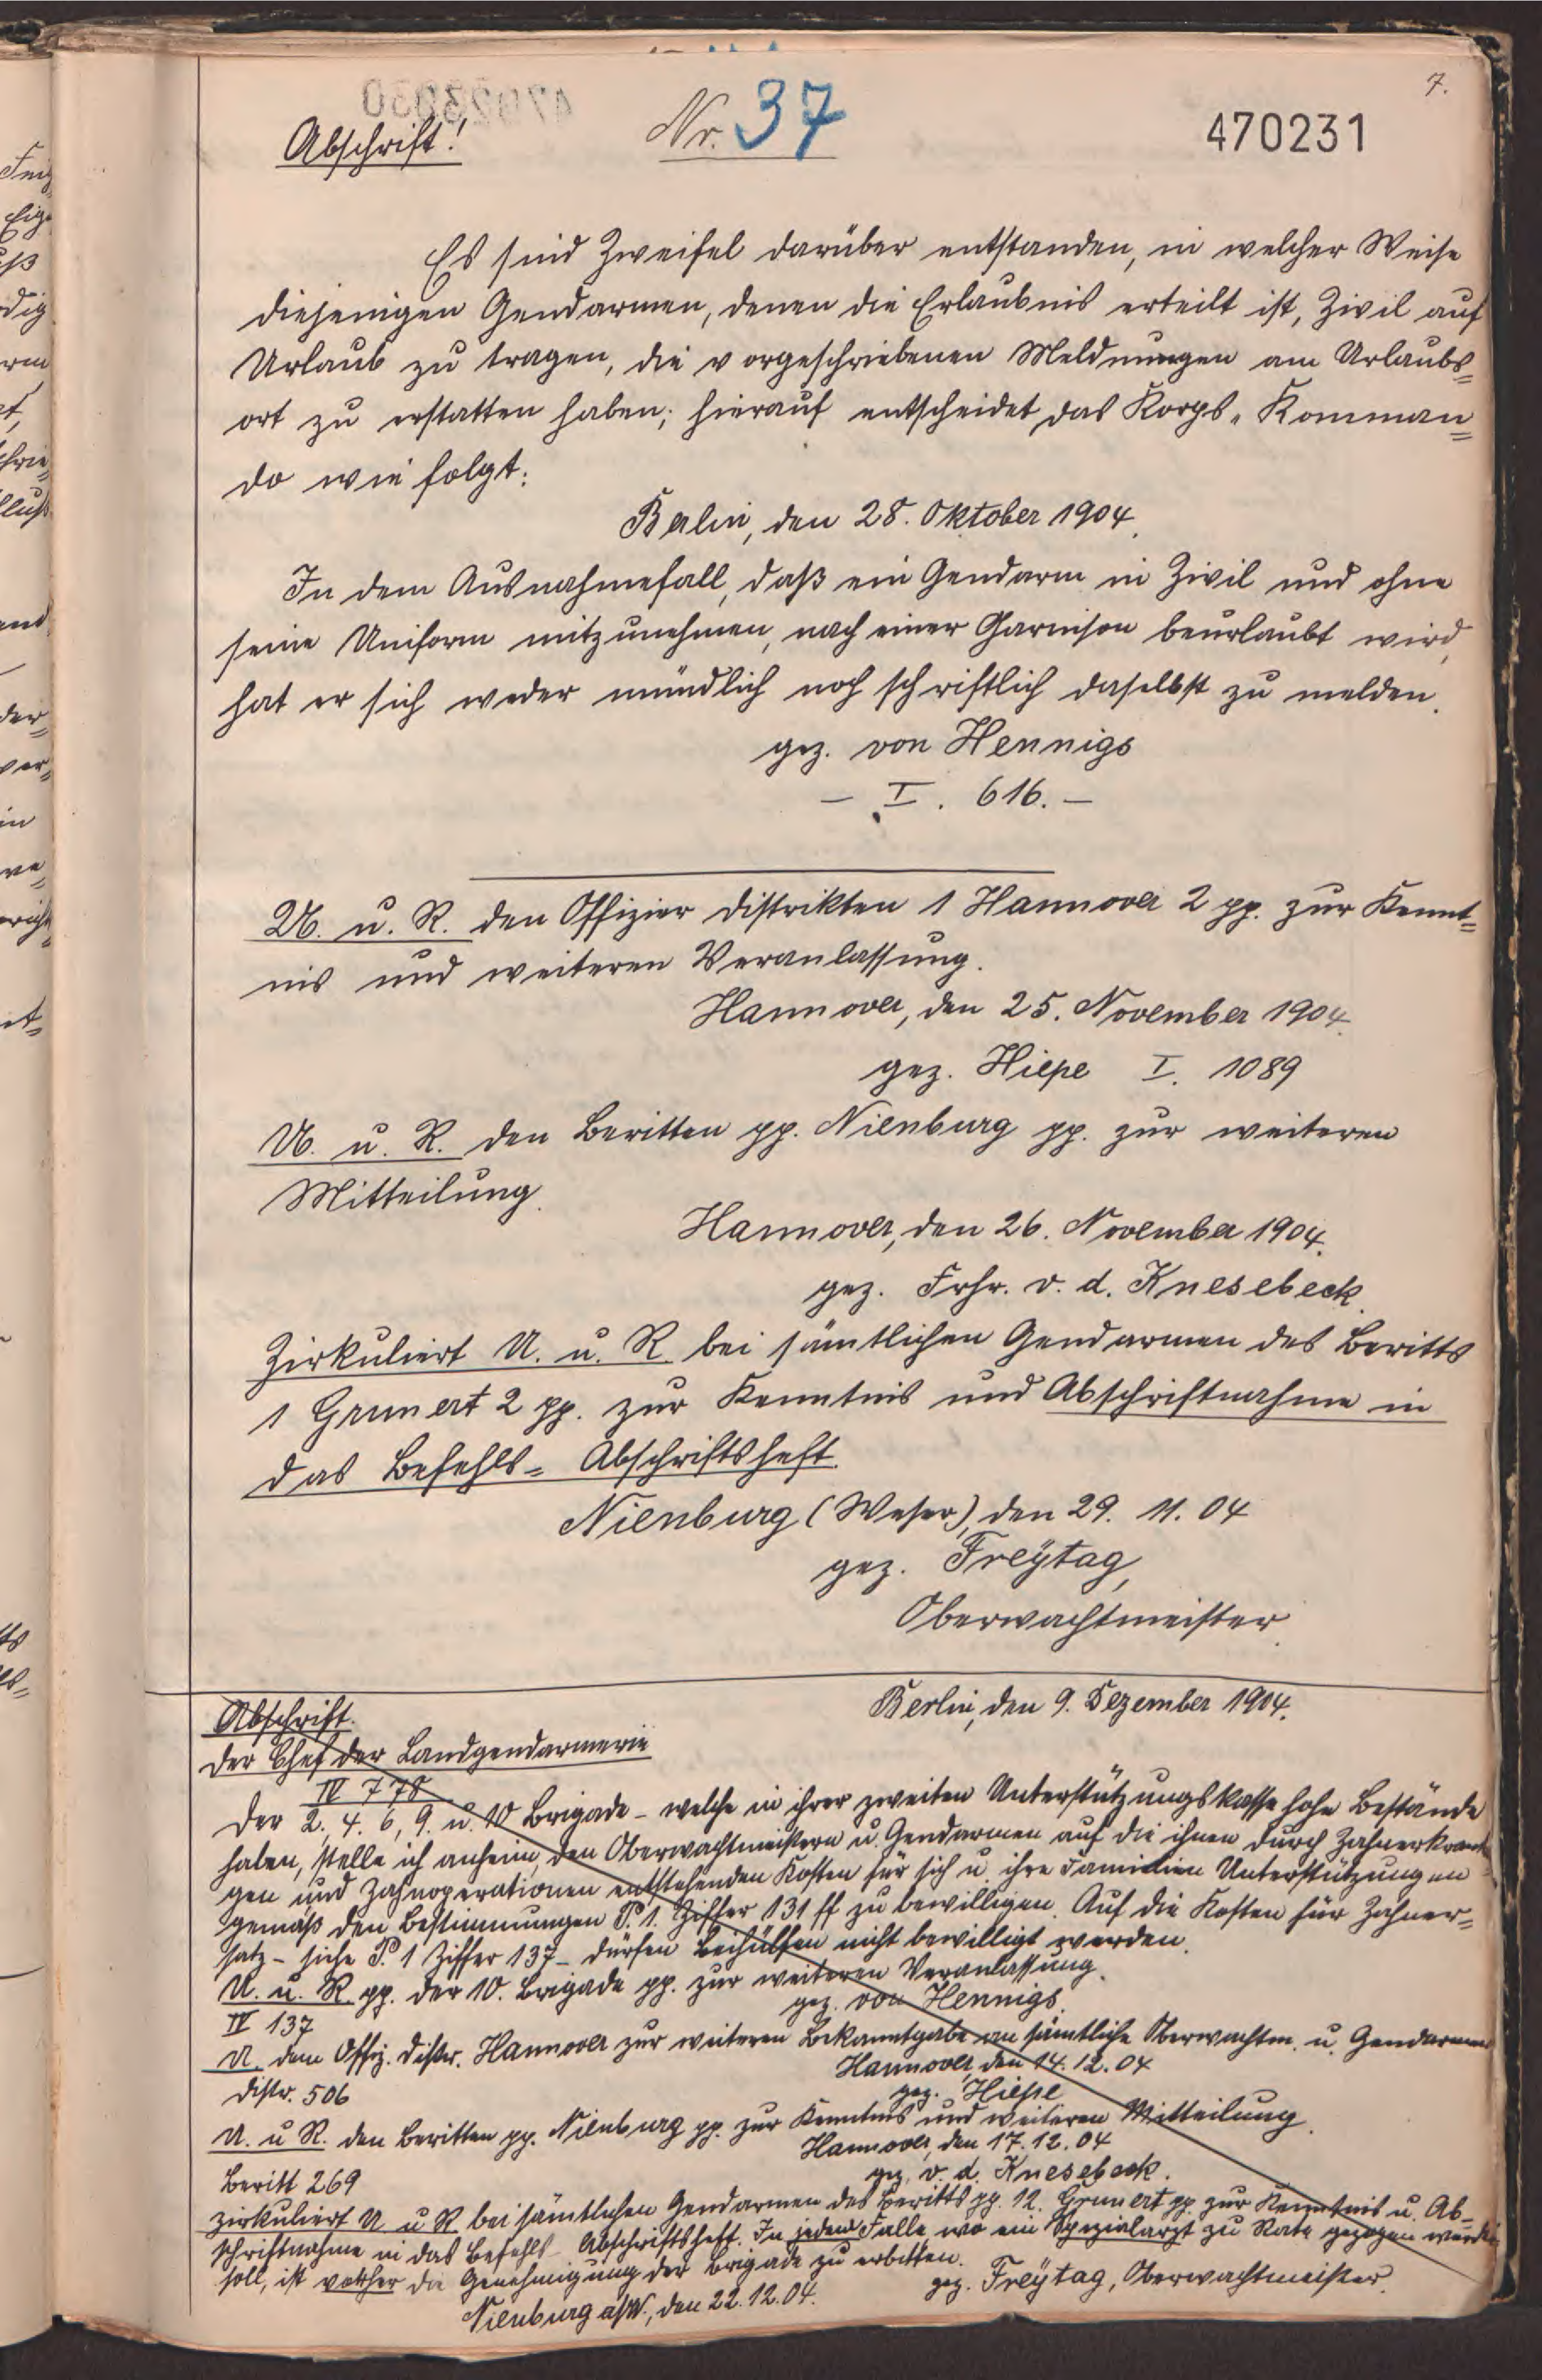 7.
Abschrift!
Nr. 37
470231
Es sind Zweifel darüber entstanden, in welcher Weise
diejenigen Gendarmen, denen die Erlaubnis erteilt ist, Zivil auf
Urlaub zu tragen, die vorgeschriebenen Meldnungen am Urlaubs=
ort zu erstatten haben; hierauf entscheidet das Korps-Komman=
do wie folgt:
Berlin, den 28. Oktober 1904.
In dem Ausnahmefall, daß ein Gendarm in Zivil und ohne
seine Uniform mitzunehmen, nach einer Garnison beurlaubt wird,
hat er sich weder mündlich noch schriftlich daselbst zu melden.
gez. von Hennigs
– I. 616. –
U. u. R. den Offizier Distrikten 1 Hannover 2 pp. zur Kennt=
nis und weiteren Veranlassung.
Hannover, den 25. November 1904.
gez. Hiepe I. 1089
U. u. R. den Beritten pp. Nienburg pp. zur weiteren
Mitteilung.
Hannover, den 26. November 1904.
gez. Frhr. v. d. Knesebeck.
Zirkuliert U. u. R. bei sämtlichen Gendarmen des Beritts
1 Grunert 2 pp. zur Kenntnis und Abschriftnahme in
das Befehls= Abschriftsheft.
Nienburg (Weser), den 29. 11. 04
gez. Freÿtag,
Oberwachtmeister.
Abschrift.
Berlin, den 9. Dezember 1904.
Der Chef der Landgendarmerie
IV 778
Der 2., 4. 6, 9. u. 10 Brigade – welche in ihrer zweiten Unterstützungskasse hohe Bestände
haben, stelle ich anheim, den Oberwachtmeistern u. Gendarmen auf die ihnen durch Zahnerkrankun
gen und Zahnoperationen entstehenden Kosten für sich u. ihre Familien Unterstützungen
gemäß den Bestimmungen P. 1. Ziffer 131 ff zu bewilligen. Auf die Kosten für Zahner=
satz – siehe P. 1 Ziffer 137 – dürfen Beihülfen nicht bewilligt werden.
U. u. R. pp. der 10. Brigade pp. zur weiteren Veranlassung.
gez. von Hennigs.
IV 137
U. dem Offiz. Distr. Hannover zur weiteren Bekanntgabe an sämtliche Oberwachtm. u. Gendarmen
Hannover, den 14. 12. 04
Distr. 506
gez. Hiepe
U. u R. den Beritten pp. Nienburg pp. zur Kenntnis und weiteren Mitteilung.
Hannover, den 17. 12. 04
Beritt 269
gez. v. d. Knesebeck.
Zirkuliert U u R bei sämtlichen Gendarmen des Beritts pp. 12. Grunert pp zur Kenntnis u. Ab=
schriftnahme in das Befehls- Abschriftsheft. In jedem Falle wo ein Spezialarzt zu Rate gezogen werden
soll, ist vorher die Genehmigung der Brigade zu erbitten.
gez. Freÿtag, Oberwachtmeister.
Nienburg a/W., den 22. 12. 04.